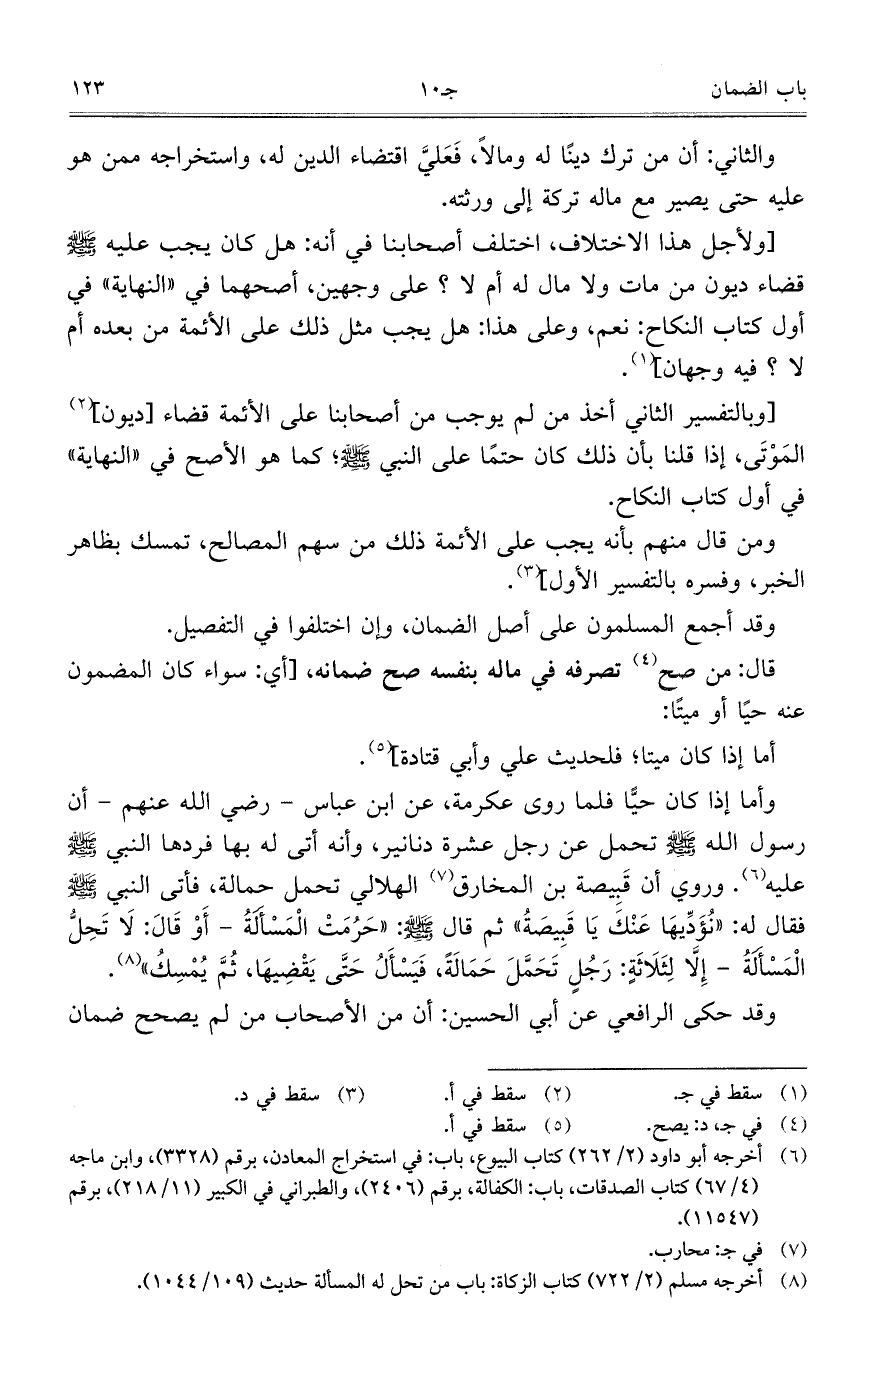 باب الضمان جـ١٠ ١٢٣
والثاني: أن من ترك دينًا له ومالاً، فَعَليَّ اقتضاء الدين له، واستخراجه ممن هو
عليه حتى يصير مع ماله تركة إلى ورثته.
[ولأجل هذا الاختلاف، اختلف أصحابنا في أنه: هل كان يجب عليه ﷺ
قضاء ديون من مات ولا مال له أم لا ؟ على وجهين، أصحهما في «النهاية» في
أول كتاب النكاح: نعم، وعلى هذا: هل يجب مثل ذلك على الأئمة من بعده أم
لا ؟ فيه وجهان](١).
[وبالتفسير الثاني أخذ من لم يوجب من أصحابنا على الأئمة قضاء [ديون](٢)
المَوْتَى، إذا قلنا بأن ذلك كان حتمًا على النبي ﷺ؛ كما هو الأصح في «النهاية»
في أول كتاب النكاح.
ومن قال منهم بأنه يجب على الأئمة ذلك من سهم المصالح، تمسك بظاهر
الخبر، وفسره بالتفسير الأول](٣).
وقد أجمع المسلمون على أصل الضمان، وإن اختلفوا في التفصيل.
قال: من صح(٤) تصرفه في ماله بنفسه صح ضمانه، [أي: سواء كان المضمون
عنه حيًا أو ميتًا:
أما إذا كان ميتا؛ فلحديث علي وأبي قتادة](٥).
وأما إذا كان حيًّا فلما روى عكرمة، عن ابن عباس - رضي الله عنهم - أن
رسول الله ﷺ تحمل عن رجل عشرة دنانير، وأنه أتى له بها فردها النبي ﷺ
عليه(٦). وروي أن قَبِيصة بن المخارق(٧) الهلالي تحمل حمالة، فأتى النبي ﷺ
فقال له: «نُؤَدِّيهَا عَنْكَ يَا قَبِيصَةُ» ثم قال ﷺ: «حَرُمَتْ الْمَسْأَلَةُ - أَوْ قَالَ: لَا تَحِلُّ
الْمَسْأَلَةُ - إِلَّا لِثَلَاثَةٍ: رَجُلٍ تَحَمَّلَ حَمَالَةً، فَيَسْأَلُ حَتَّى يَقْضِيهَا، ثُمَّ يُمْسِكُ»(٨).
وقد حكى الرافعي عن أبي الحسين: أن من الأصحاب من لم يصحح ضمان
(١) سقط في جـ. (٢) سقط في أ. (٣) سقط في د.
(٤) في جـ، د: يصح. (٥) سقط في أ.
(٦) أخرجه أبو داود (٢/ ٢٦٢) كتاب البيوع، باب: في استخراج المعادن، برقم (٣٣٢٨)، وابن ماجه
(٤/ ٦٧) كتاب الصدقات، باب: الكفالة، برقم (٢٤٠٦)، والطبراني في الكبير (١١/ ٢١٨)، برقم
(١١٥٤٧).
(٧) في جـ: محارب.
(٨) أخرجه مسلم (٢/ ٧٢٢) كتاب الزكاة: باب من تحل له المسألة حديث (١٠٩/ ١٠٤٤).